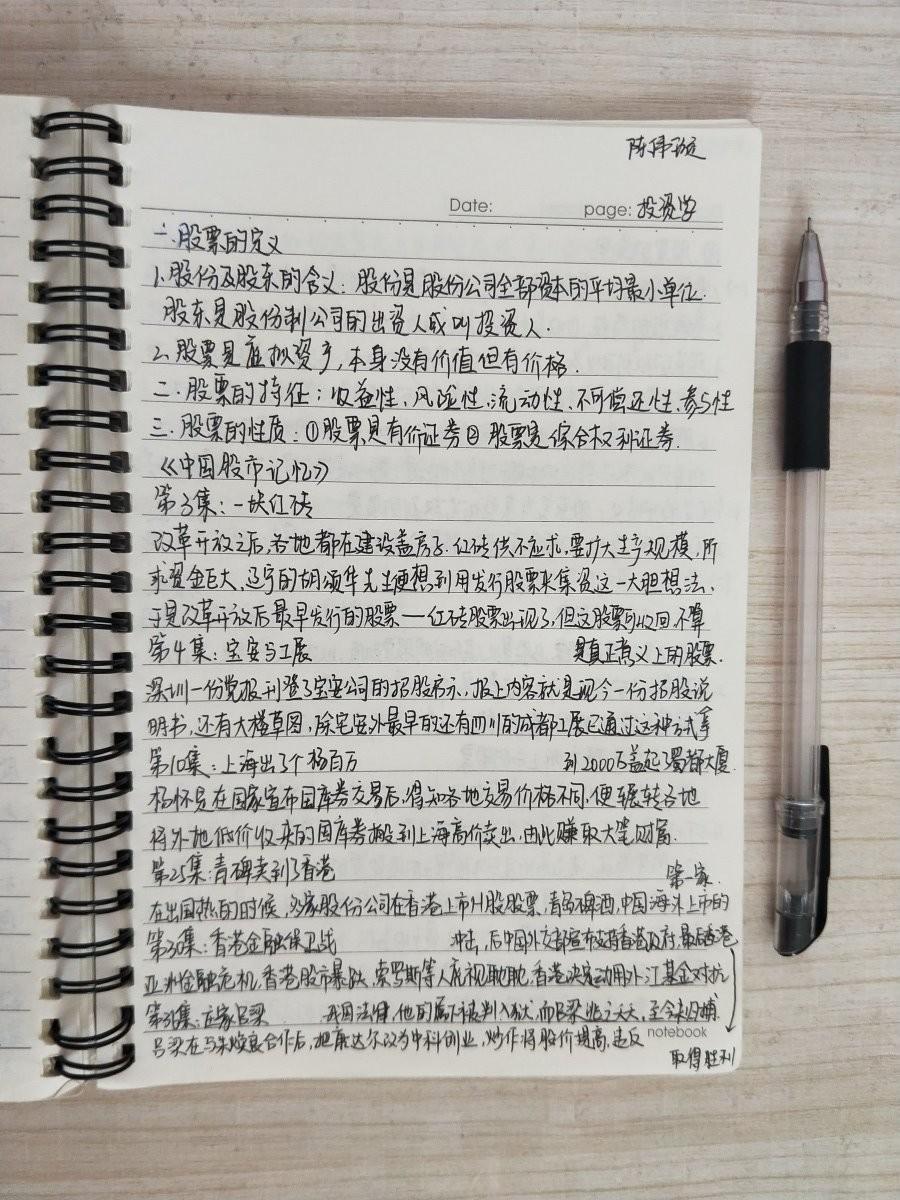 陈伟璇
Date:
page: 投资学
一.股票的定义
1.股份及股东的含义：股份是股份公司全部资本的平均最小单位.
股东是股份制公司的出资人或叫投资人.
2.股票是虚拟资产,本身没有价值但有价格.
二.股票的特征：收益性、风险性、流动性、不可偿还性、参与性
三.股票的性质：①股票是有价证券②股票是综合权利证券.
《中国股市记忆》
第3集：一块红砖
改革开放之后,各地都在建设盖房子.红砖供不应求,要扩大生产规模,所
求资金巨大,辽宁的胡颂华先生便想到用发行股票来集资这一大胆想法.
于是改革开放后最早发行的股票一一红砖股票出现了,但这股票可收回不算
第4集：宝安与工展
是真正意义上的股票.
深圳一份党报刊登了宝安公司的招股启示,报上内容就是现今一份招股说
明书,还有大楼草图,除宝安外最早的还有四川的成都工展已通过这种方式筹
第10集：上海出了个杨百万
到2000万盖起了蜀都大厦.
杨怀定在国家宣布国库券交易后,得知各地交易价格不同,便辗转各地
将外地低价收来的国库券搬到上海高价卖出,由此赚取大笔财富.
第25集：青啤卖到了香港
第一家.
在出国热的时候,多家股份公司在香港上市H股股票,青岛啤酒,中国海外上市的
第30集：香港金融保卫战
冲击,后中国外交部宣布支持香港政府,最后香港
亚洲金融危机,香港股市暴跌,索罗斯等人虎视眈眈,香港决定动用外汇基金对抗
第36集：庄家吕梁
我国法律,他的属下被判入狱,而吕梁逃之夭夭,至今未归捕.
吕梁在与朱焕良合作后,把康达尔改为中科创业,炒作将股价提高,违反
notebook
取得胜利